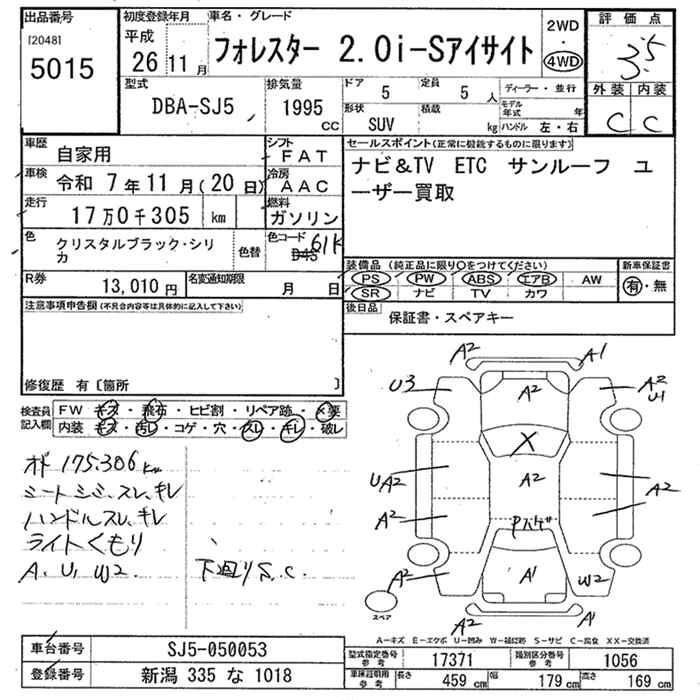 出品番号
[2048]
5015
初度登録年月
平成
26 11 月
車名・グレード
フォレスター 2.0i-Sアイサイト
2WD
・
4WD
評価点
3.5
外装 内装
C C
型式
DBA-SJ5
排気量
1995
CC
ドア
5
定員
5 人
形状
SUV
積載
kg
ディーラー・並行
モデル
年式 年
ハンドル 左・右
車歴
自家用
シフト
FAT
車検
令和 7年11月(20日)
冷房
AAC
走行
17万0千305 km
燃料
ガソリン
色
クリスタルブラック・シリ
カ
色替
色コード
D4S 61K
R券
13,010円
名変通知期限
月 日
セールスポイント(正常に機能するものに限ります)
ナビ&TV ETC サンルーフ ユ
ーザー買取
装備品 (純正品に限り○をつけてください)
PS PW ABS エアB AW
SR ナビ TV カワ
新車保証書
有・無
後日品
保証書・スペアキー
注意事項申告欄(不具合内容等は具体的に記入して下さい)
修復歴 有〔箇所 〕
検査員
記入欄
FW キズ・飛石・ヒビ割・リペア跡・×要
内装 キズ・汚レ・コゲ・穴・スレ・キレ・破レ
オド 175.306 km
シートシミ、スレ、キレ
ハンドルスレ、キレ
ライトくもり
A、U、W2 下廻りS.C.
A2 A1
U3 A2 A2
U1
X
UA2 A2 A2
A2 Pハゲ
A2 A1 W2
スペア
A2 A1
A-キズ E-エクボ U-凹み W-補修跡 S-サビ C-腐食 XX-交換済
車台番号
SJ5-050053
登録番号
新潟 335 な 1018
型式指定番号
参考
17371
類別区分番号
参考
1056
車検証明用
参考
長さ
459 cm
幅
179 cm
高さ
169 cm